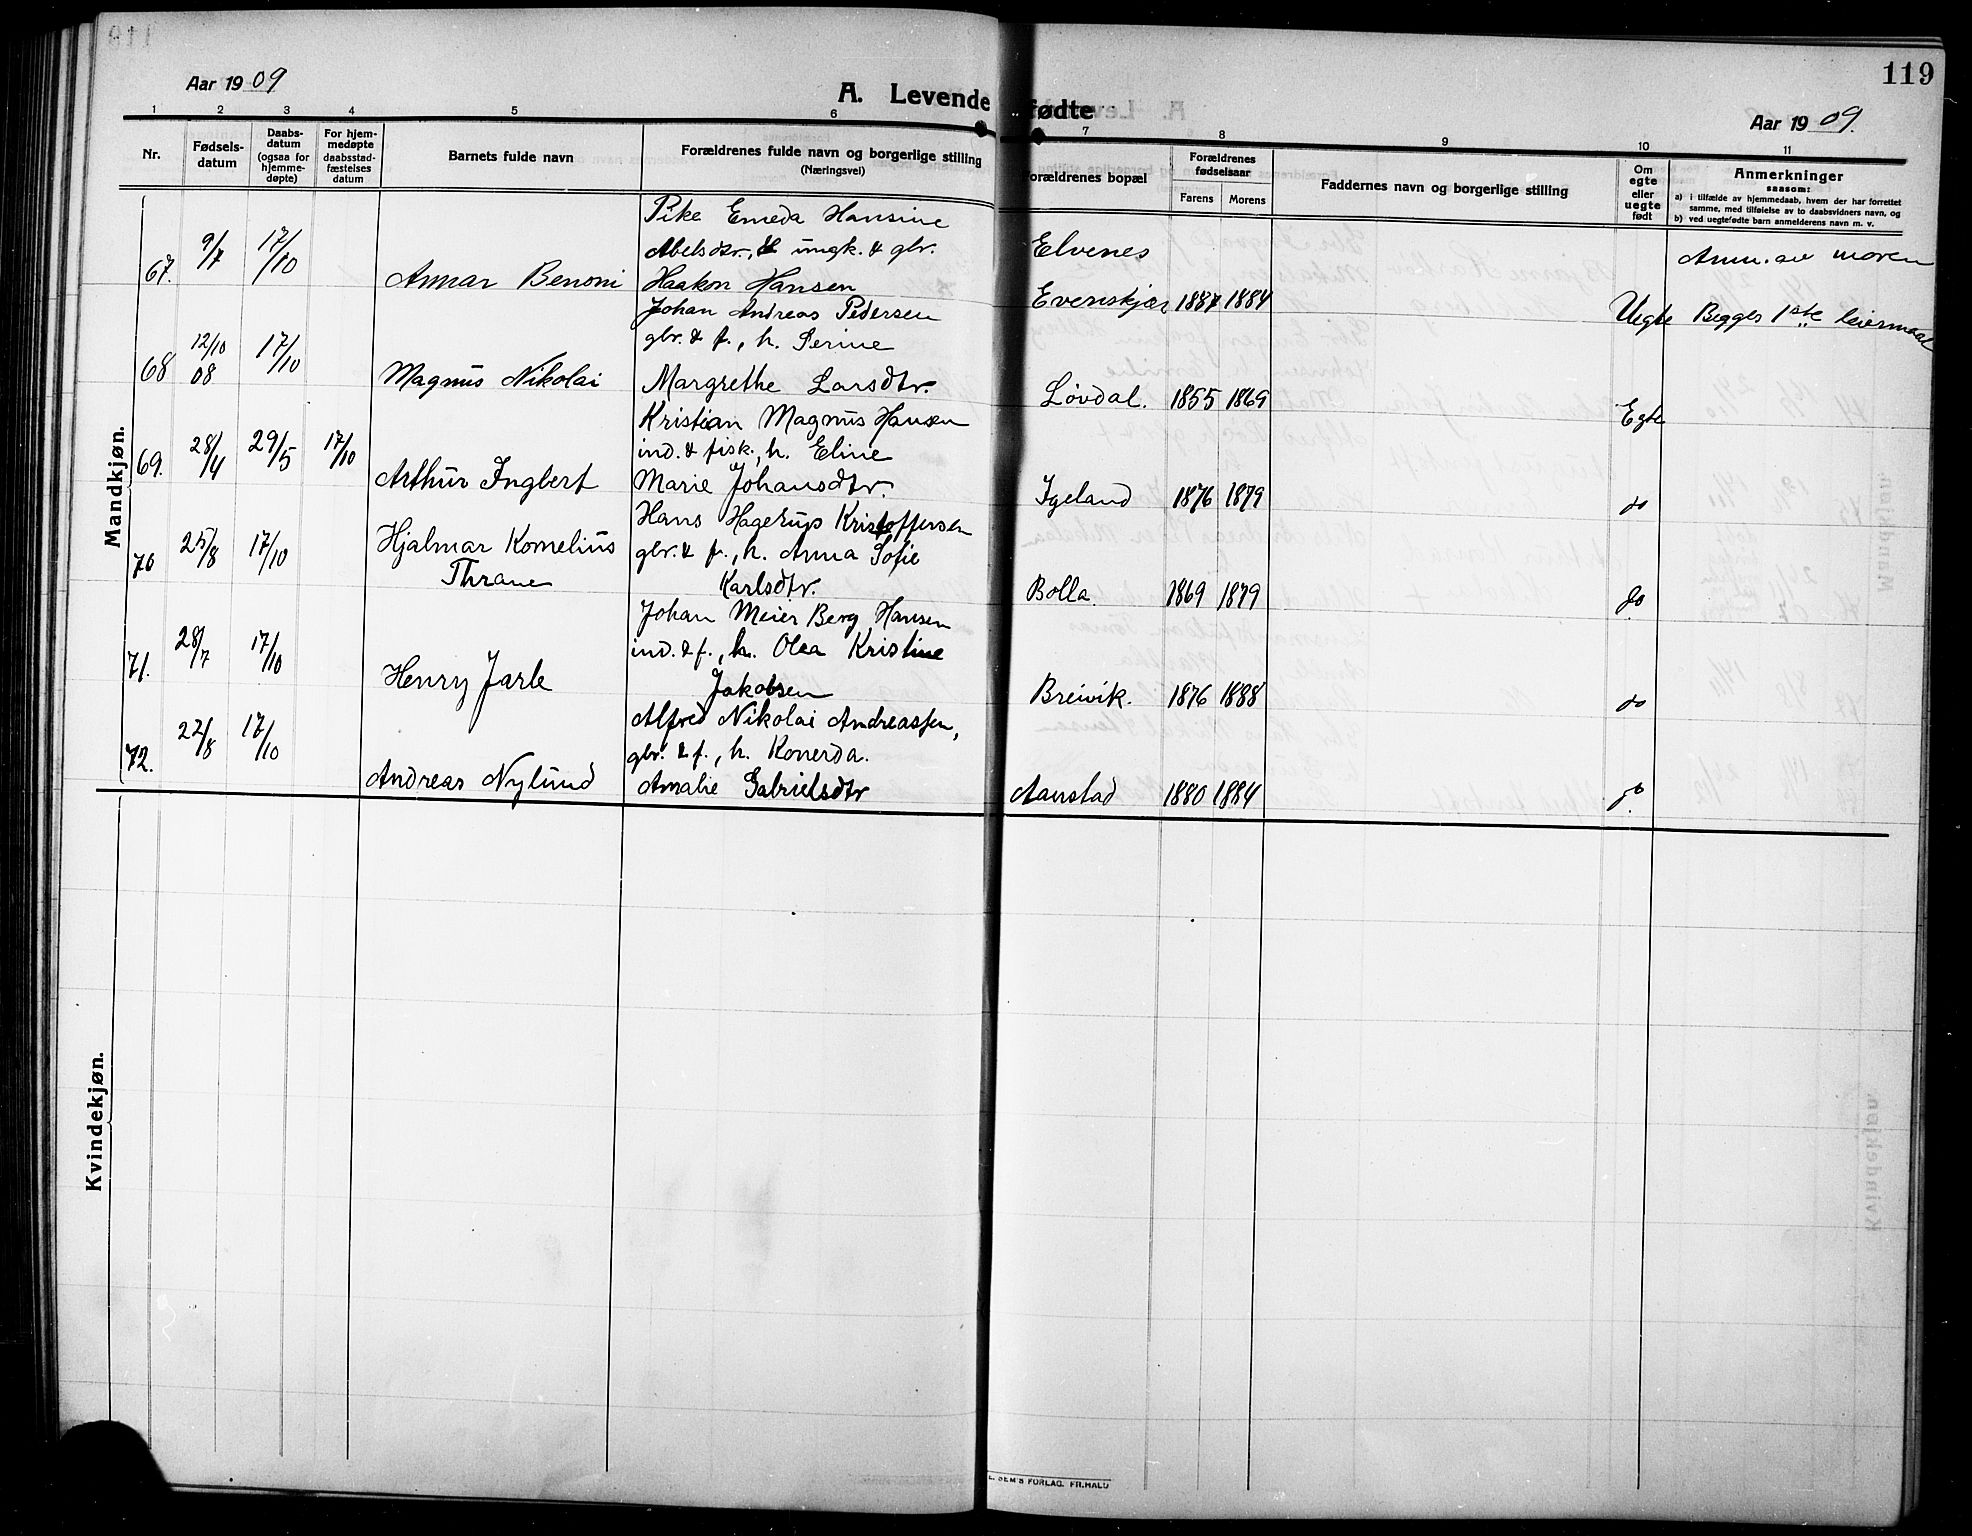 119
Aar 1909
A. Levende fødte
Aar 1909.
1 2 3 4 5 6 7 8 9 10 11
Nr.
Fødsels-
datum
Daabs-
datum
(ogsaa for
hjemme-
døpte)
For hjem-
medøpte
daabsstad-
fæstelses
datum
Barnets fulde navn
Forældrenes fulde navn og borgerlige stilling
(Næringsvei)
Forældrenes bopæl
Forældrenes
fødselsaar
Farens Morens
Faddernes navn og borgerlige stilling
Om
egte
eller
uegte
født
Anmerkninger
saasom:
a) i tilfælde av hjemmedaab, hvem der har forrettet
samme, med tilføielse av to daabsvidners navn, og
b) ved uegtefødte barn anmelderens navn m. v.
Mandkjøn.
Pike Emeda Hansine
9/7 17/10 Abelsdtr., & ungk. & gbr. Elvenes Anm. av moren
67. Annar Benoni Haakon Hansen Evenskjær 1887 1884 Uegte Begges 1ste leiermaal
Johan Andreas Pedersen
12/10 17/10 gbr. & f., h. Serine
68 08 Magnus Nikolai Margrethe Larsdtr. Løvdal. 1855 1869 Egte
Kristian Magnus Hansen
69. 28/4 29/5 17/10 ind. & fisk., h. Eline
Arthur Ingbert Marie Johansdtr. Igeland 1876 1879 do
Hans Hagerup Kristoffersen
70 25/8 17/10 Hjalmar Kornelius gbr. & f., h. Anna Sofie
Thrane Karlsdtr. Bolla. 1869 1879 do
Johan Meier Berg Hansen
71. 28/7 17/10 ind. & f., h. Olea Kristine
Henry Jarle Jakobsen Breivik. 1876 1888 do
Alfred Nikolai Andreassen,
72. 22/8 17/10 gbr. & f., h. Konerda.
Andreas Nylund Amalie Gabrielsdtr Aanstad 1880 1884 do
Kvindekjøn.
SEM'S FORLAG. FR.HALD